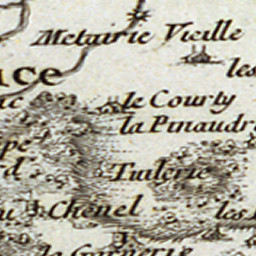 Metairie Vieille
les
le Courty
la Pinaudr
Tuilerie
Chenel
les
la Garnerie